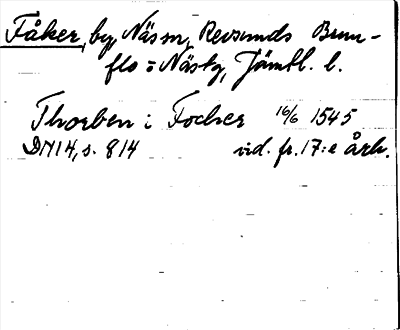 Fåker, by, Näs sn, Revsunds Brun-
flo o Näs tg, Jämtl. l.
Thorben i Focker 16/6 1545
DN14, s. 814 vid. fr. 17:e årh.